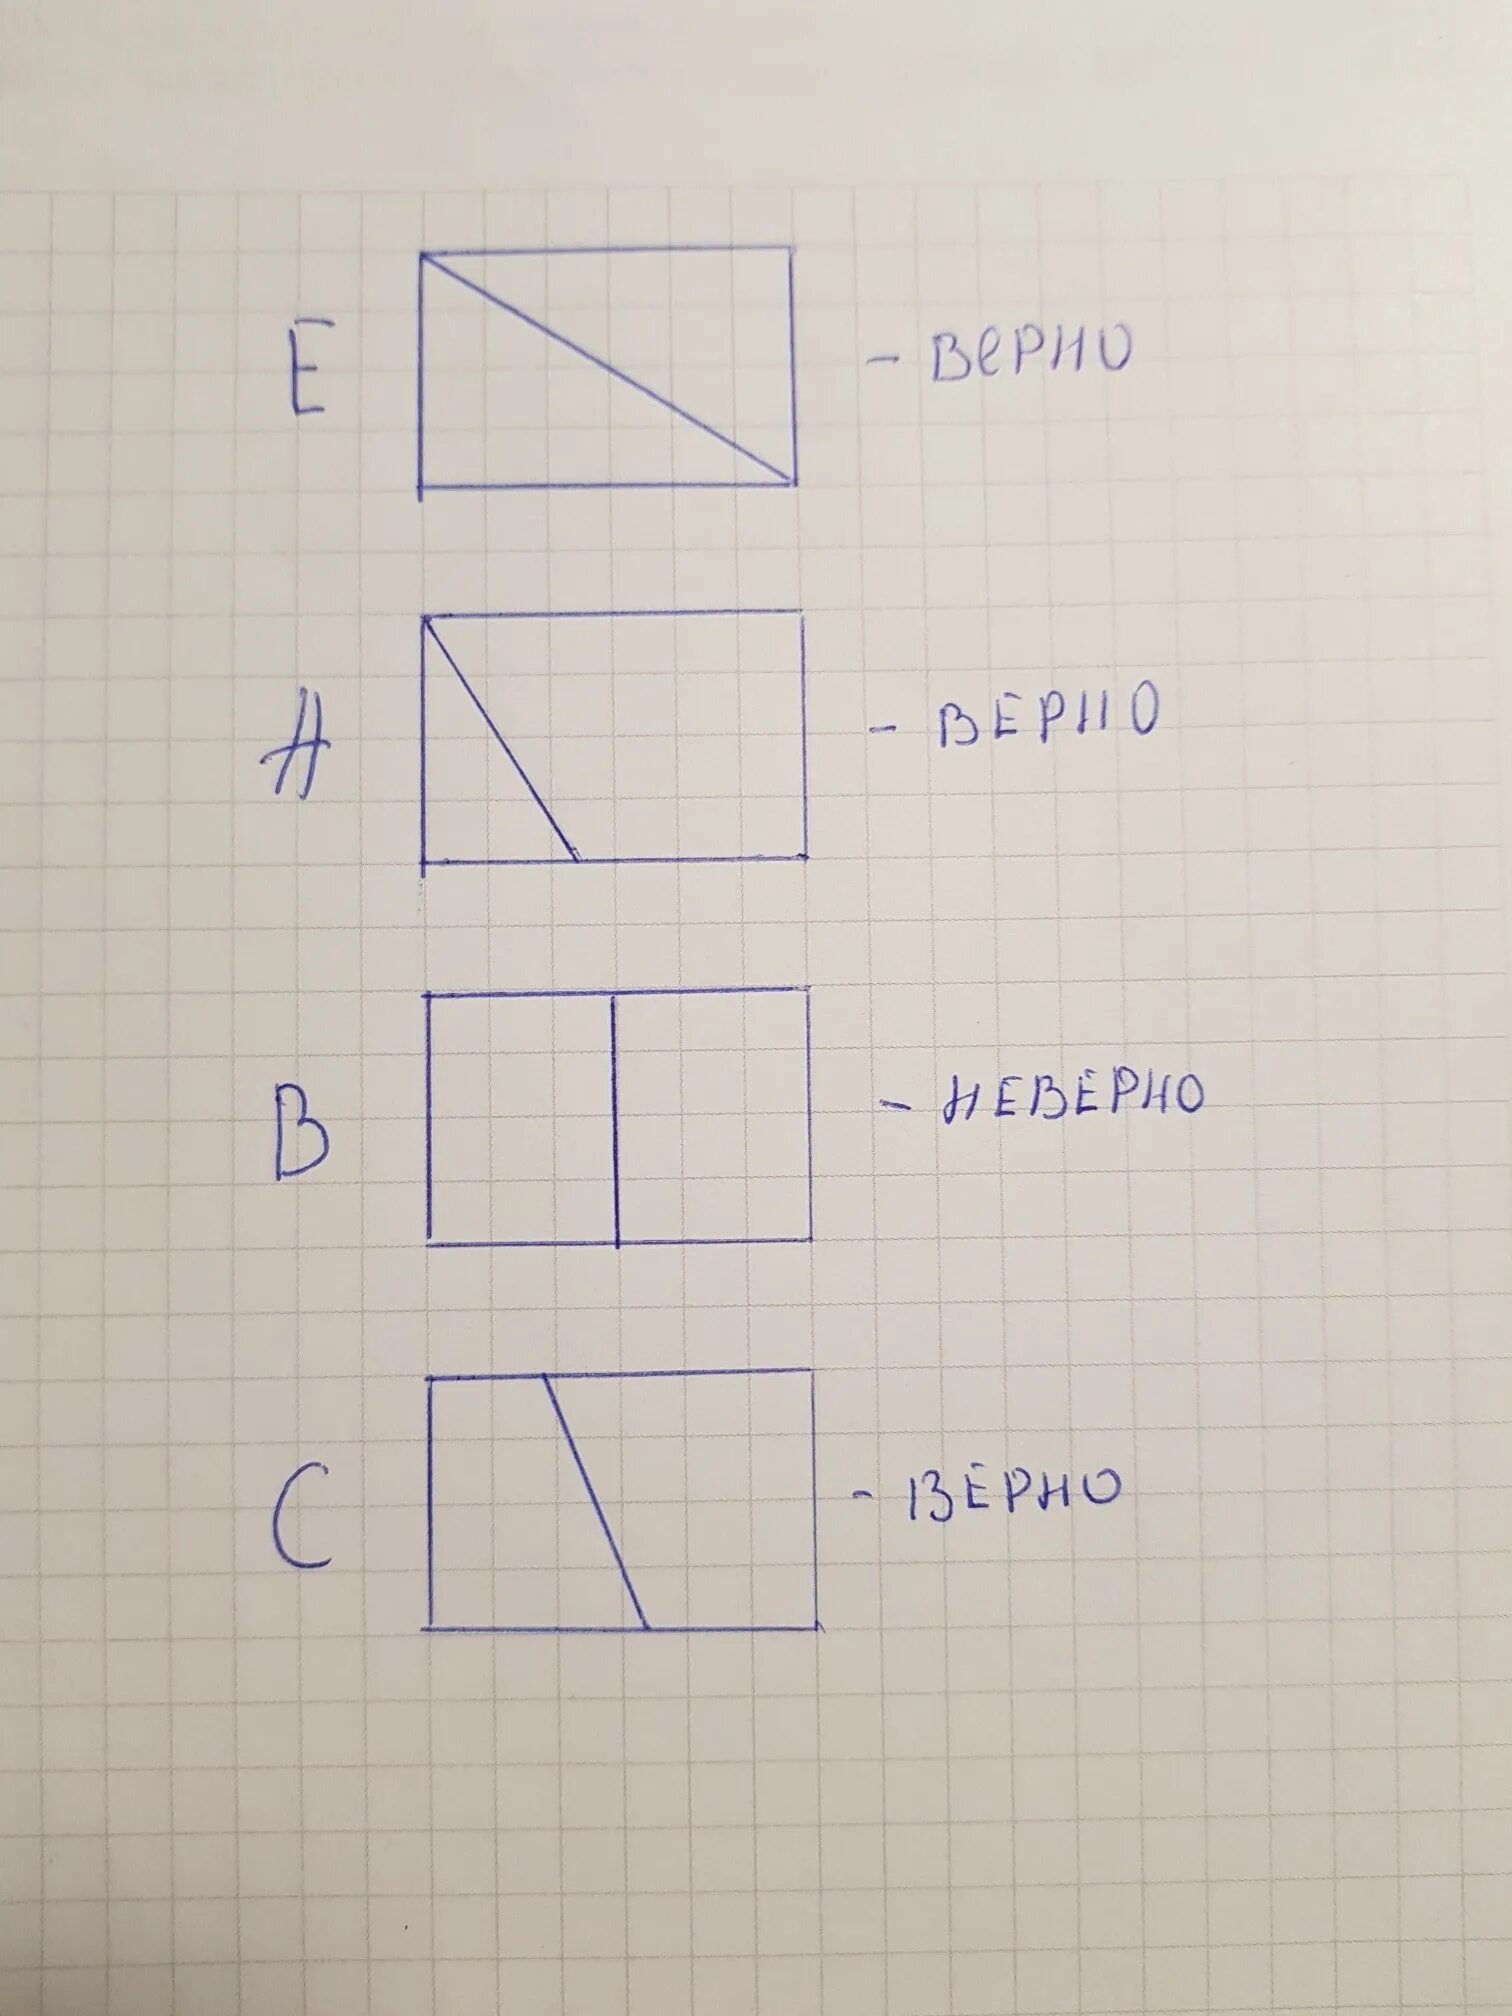 E - ВеРНО
А - ВЕРНО
В - НЕВЕРНО
С - ВЕРНО